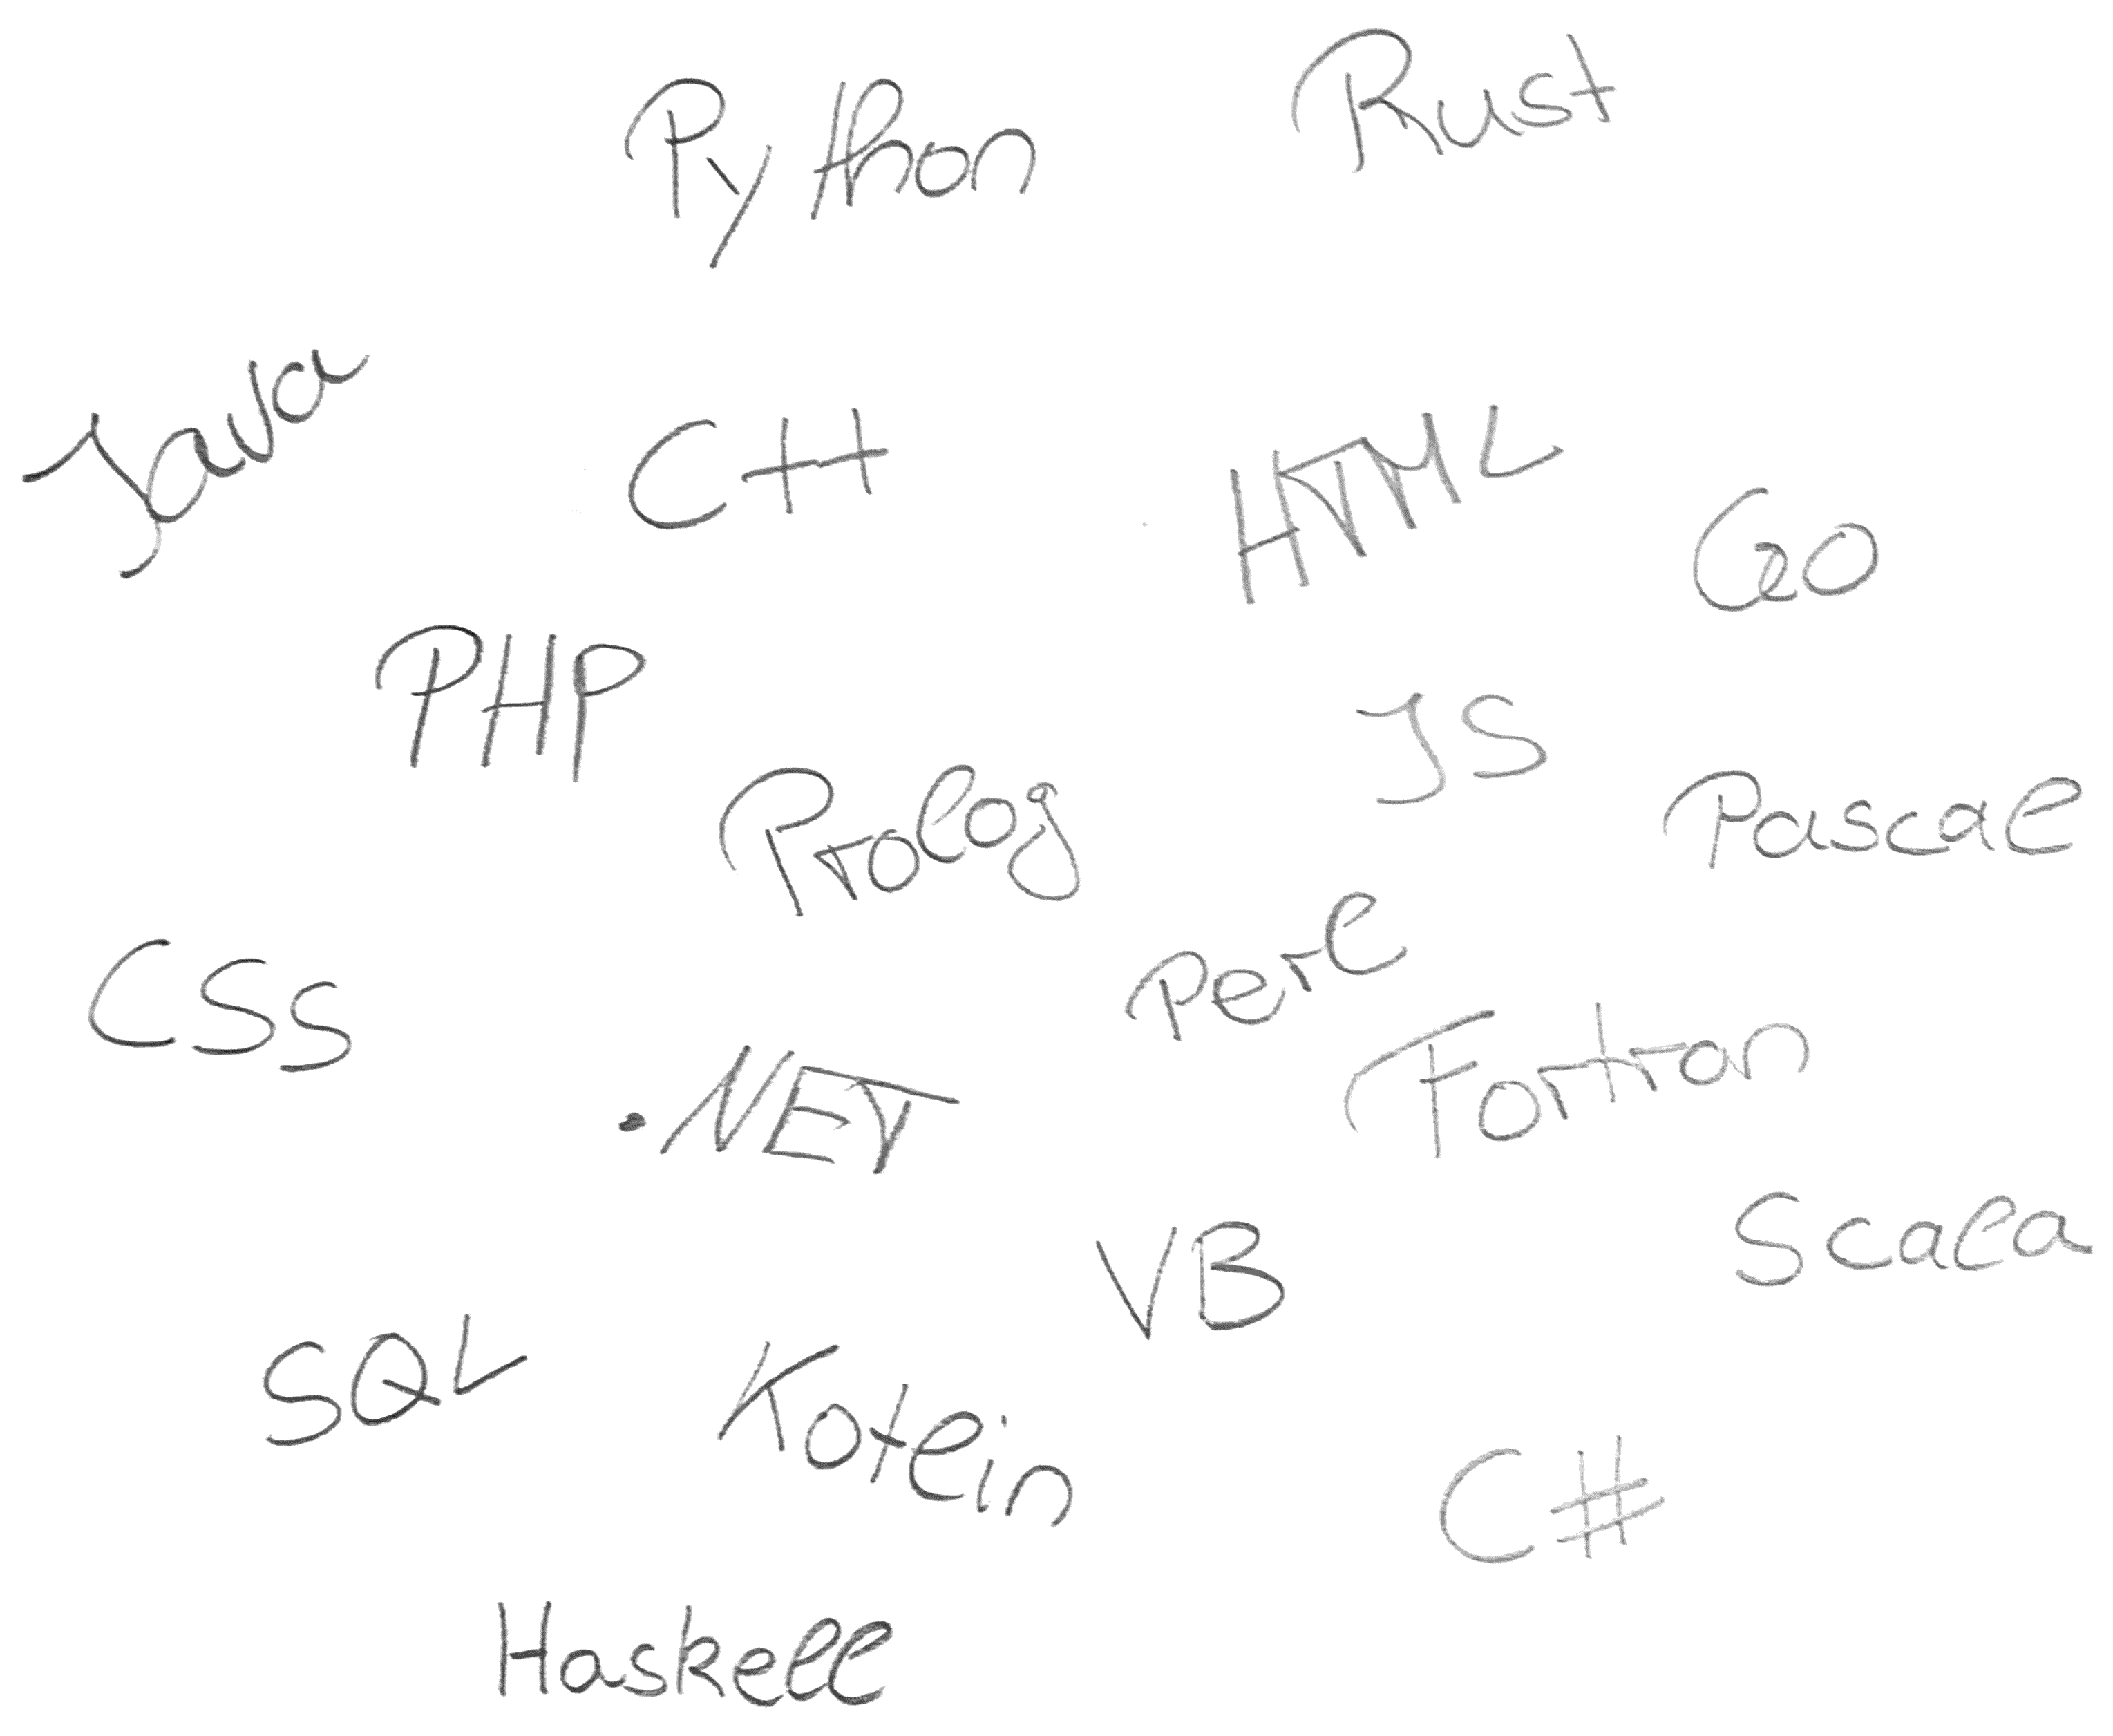 Python
Rust
Java
C++
HTML
Go
PHP
JS
Prolog
Pascal
CSS
Perl
.NET
Fortran
Scala
VB
SQL
Kotlin
C#
Haskell